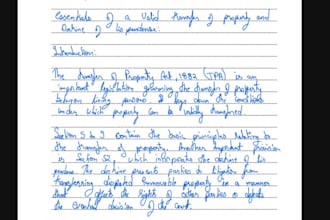 Essentials of a Valid transfer of property and
Doctrine of lis pendens.
Introduction:
The transfer of Property Act, 1882 (TPA) is an
important legislation governing the transfer of property
between living persons. It lays down the conditions
under which property can be validly transferred.
Section 5 to 9 contain the basic principles relating to
the transfer of property. Another important provision
is Section 52, which incorporates the doctrine of lis
pendens. The doctrine prevents parties to litigation from
transferring disputed immovable property in a manner
that affects the rights of other parties or defeats
the eventual decision of the court.